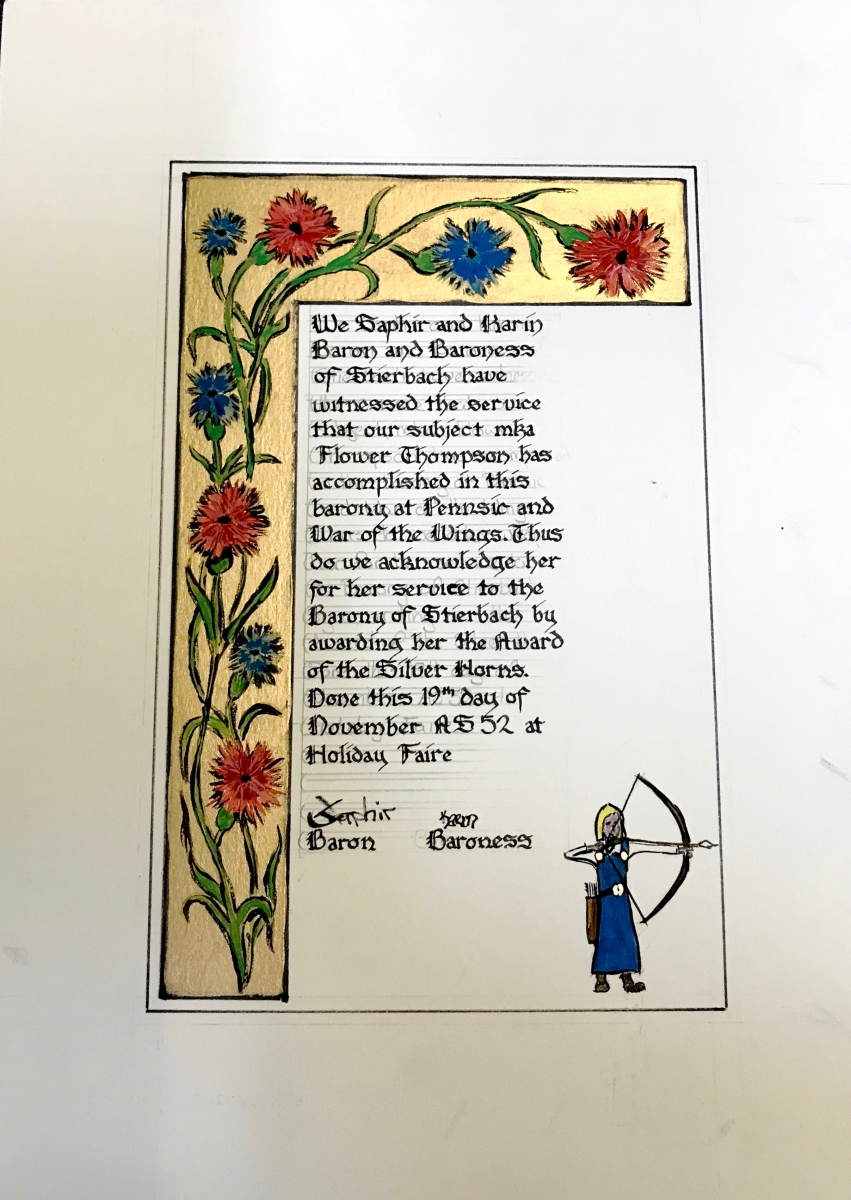 We Saphir and Karin
Baron and Baroness
of Stierbach have
witnessed the service
that our subject mka
Flower Thompson has
accomplished in this
barony at Pennsic and
War of the Wings. Thus
do we acknowledge her
for her service to the
Barony of Stierbach by
awarding her the Award
of the Silver Horns.
Done this 19th day of
November AS 52 at
Holiday Faire
Saphir Karin
Baron Baroness